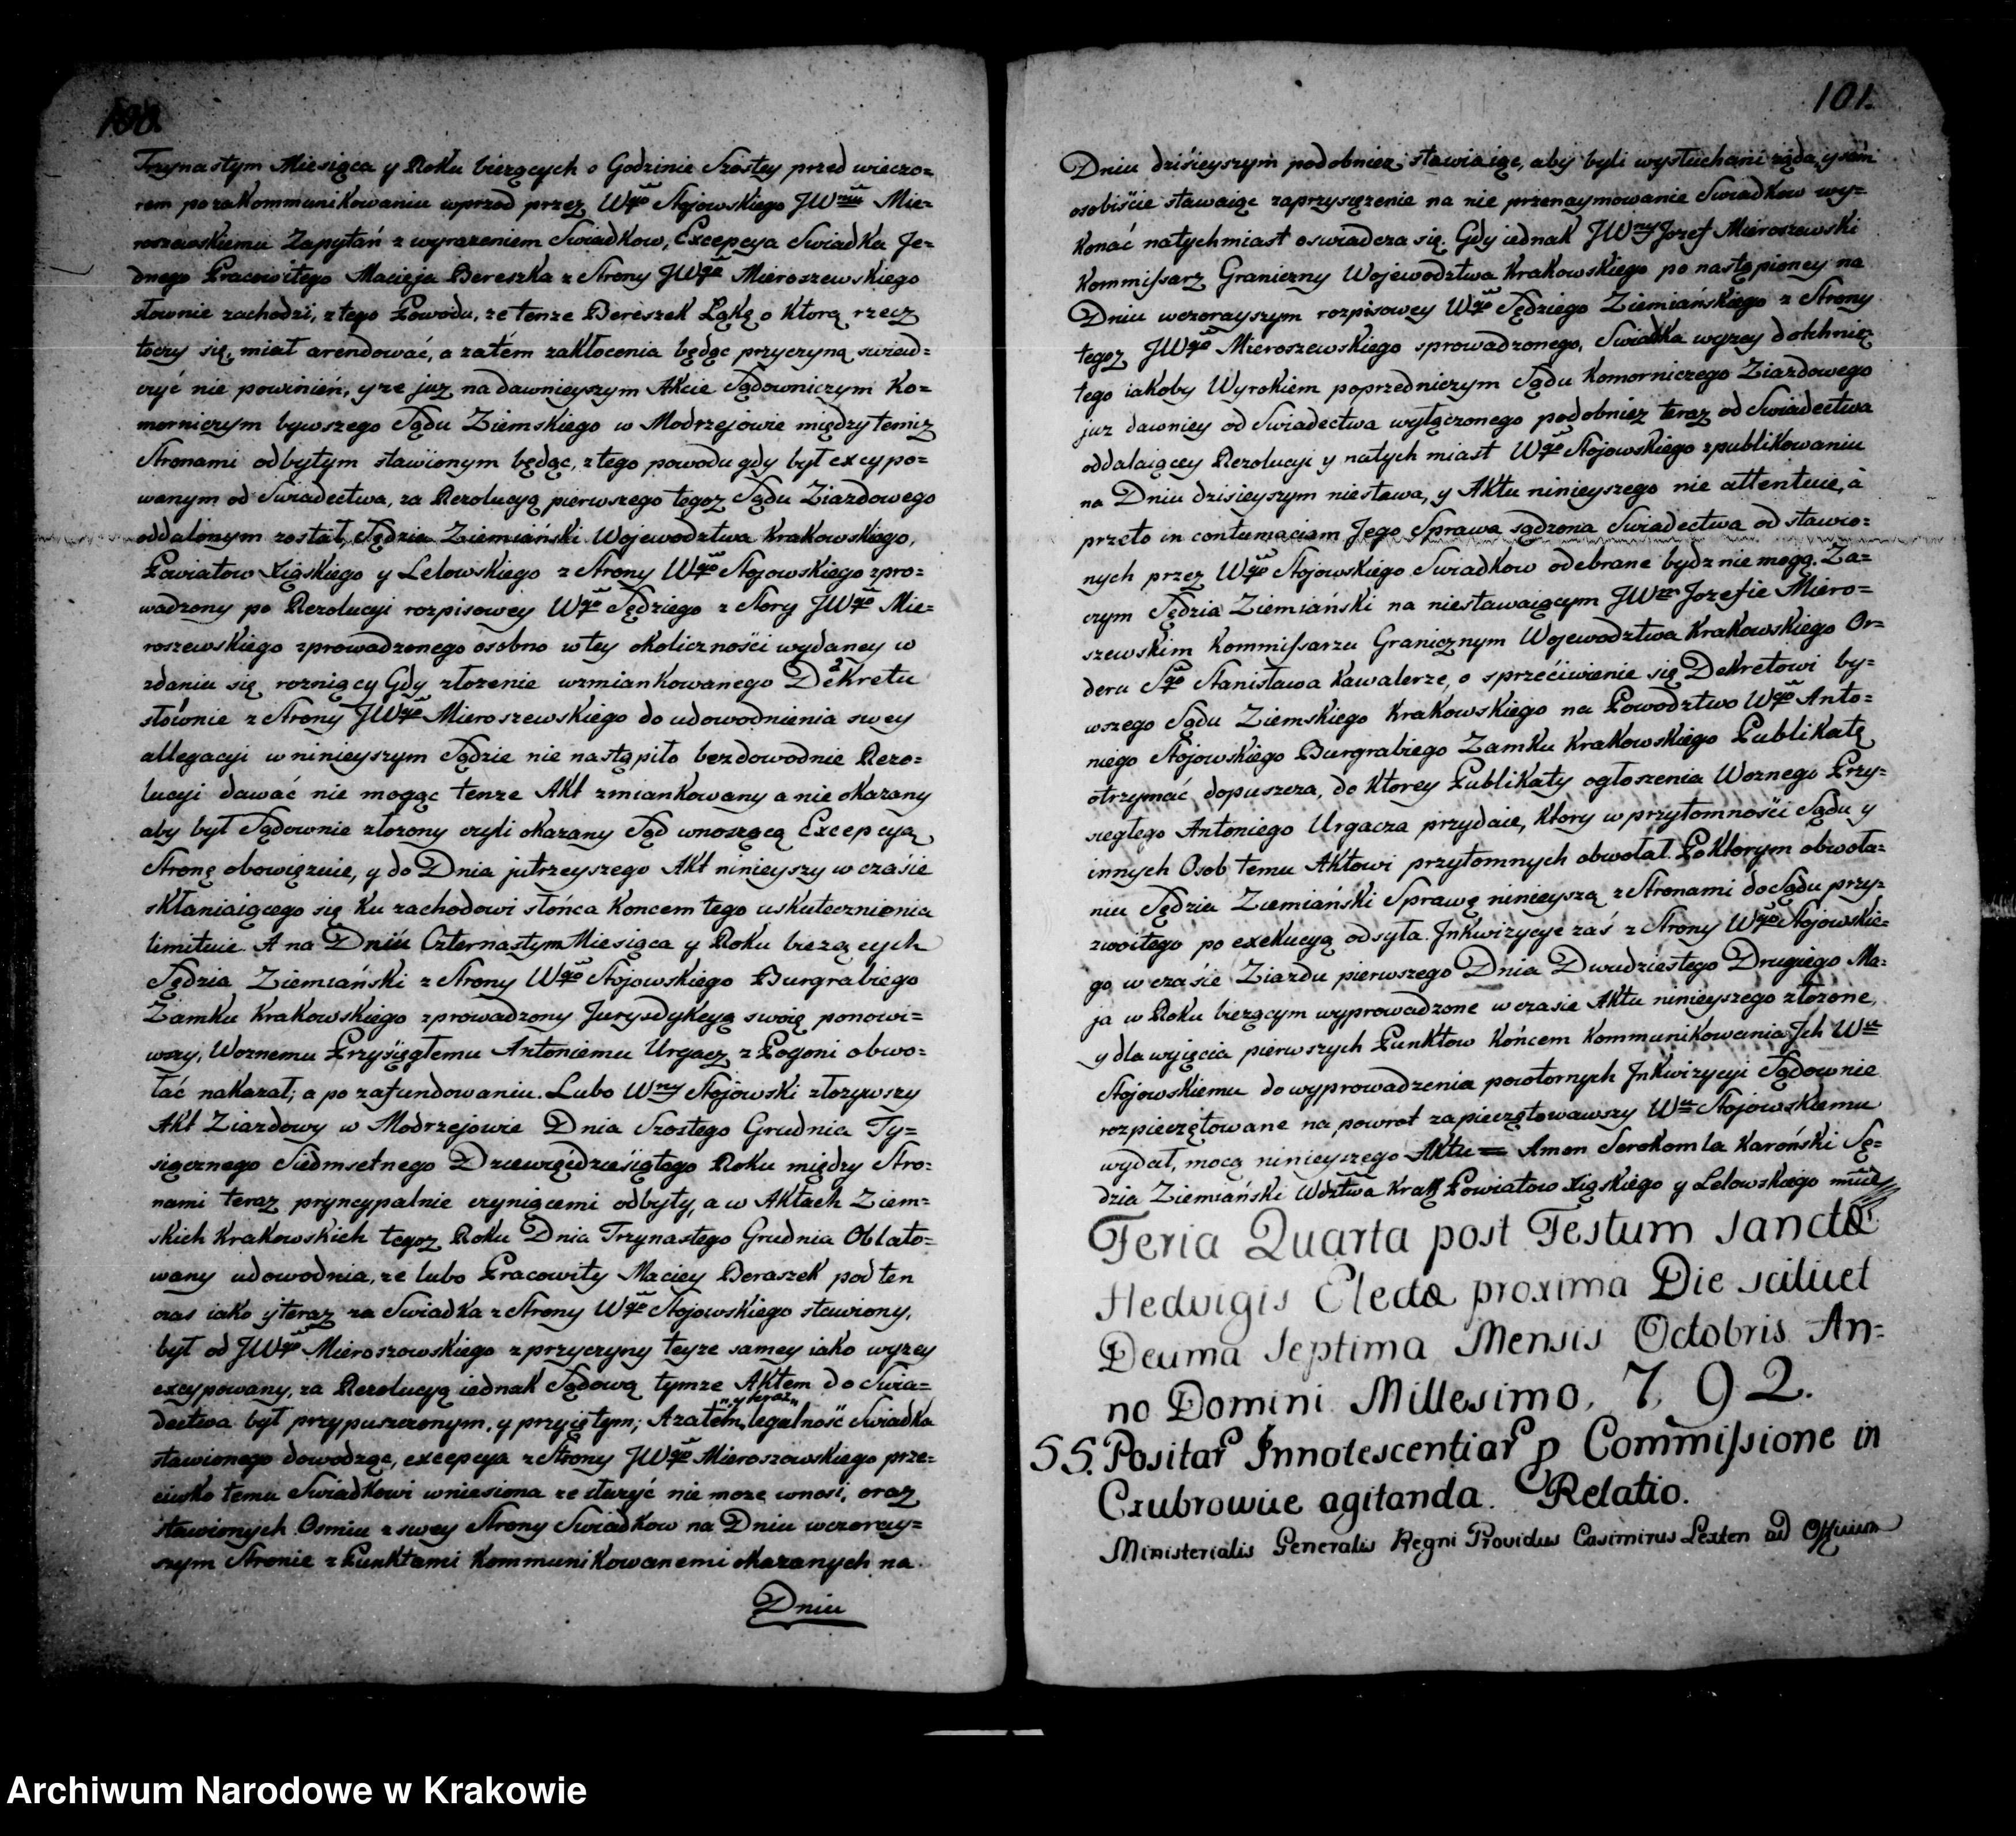 100.
Trzynastym Miesiąca y Roku bieżących o Godzinie Szostey przed wieczo=
rem po zakommunikowaniu wprzod przez Wgo Stojowskiego JWmu Mie=
roszewskiemu Zapytań z wyrażeniem Swiadkow, Excepcya Swiadka Je=
dnego Pracowitego Macieja Bereszka z Strony JWgo Mieroszewskiego
słownie zachodzi, z tego Powodu, że tenże Bereszek Łąkę o Ktorą rzecz
toczy się, miał arendować, a zatém zakłocenia będąc przyczyną swiad=
czyć nie powinień, y że już na dawnieyszym Akcie Sądowniczym Ko=
morniczym bywszego Sądu Ziemskiego w Modrzejowie między temiż
Stronami odbytym stawionym będąc, z tego powodu gdy był excypo=
wanym od Swiadectwa, za Rezolucyą pierwszego tegoż Sądu Ziazdowego
oddalonym został, Sędzia Ziemiański Wojewodztwa Krakowskiego,
Powiatow Xiąskiego y Lelowskiego z Strony Wgo Stojowskiego zpro=
wadzony po Rezolucyi rozpisowey Wgo Sędziego z Stony JWgo Mie=
roszewskiego zprowadzonego osobno w tey okolicznosći wydaney w
zdaniu się rozniący Gdy złożenie wzmiankowanego Dekretu
słownie z Strony JWgo Mieroszewskiego do udowodnienia swey
allegacyi w ninieyszym Sądzie nie nastąpiło bezdowodnie Rezo=
lucyi dawać nie mogąc tenże Akt zmiankowany a nie okazany
aby był Sądownie złożony czyli okazany Sąd wnoszącą Excepcyą
Stronę obowiązuie, y do Dnia jutrzeyszego Akt ninieyszy w czaśie
skłaniaiącego się ku zachodowi słońca Koncem tego uskutecznienia
limituie. A na Dniu Czternastym Miesiąca y Roku bieżących
Sędzia Ziemiański z Strony Wgo Stojowskiego Burgrabiego
Zamku Krakowskiego zprowadzony Jurysdykcyą swoię ponowi=
wszy, Woznemu Przysięgłemu Antoniemu Urgacz z Pogoni obwo=
łać nakazał; a po zafundowaniu. Lubo Wny Stojowski złożywszy
Akt Ziazdowy w Modrzejowie Dnia Szostego Grudnia Ty=
siącznego Siedmsetnego Dziewięćdziesiątego Roku między Stro=
nami teraz pryncypalnie czyniącemi odbyty, a w Aktach Ziem=
skich Krakowskich tegoż Roku Dnia Trzynastego Grudnia Oblato=
wany udowodnia, że lubo Pracowity Maciey Beraszek pod ten
czas iako y teraz za Swiadka z Strony Wgo Stojowskiego stawiony,
był od JWgo Mieroszowskiego z przyczyny teyże samey iako wyżey
excypowany, za Rezolucyą iednak Sądową tymże Aktem do Swia=
dectwa był przypuszczonym, y przyiętym; A zatém "y teraz" legalność Swiadka
stawionego dowodząc, excepcya z Strony JWgo Mieroszowskiego prze=
ciwko temu Swiadkowi wniesiona że służyć nie może wnosi, oraz
stawionych Osmiu z swey Strony Swiadkow na Dniu wczoray=
szym Stronie z Punktami Kommunikowanemi okazanych na
Dniu
101.
Dniu dzisieyszym podobnież stawiaiąc, aby byli wysłuchani żąda, y sam
osobiście stawaiąc zaprzysiężenie na nie przenaymowanie Swiadkow wy=
konać natychmiast oswiadcza się. Gdy iednak JWny Jozef Mieroszewski
Kommissarz Graniczny Wojewodztwa Krakowskiego po nastąpioney na
Dniu wczorayszym rozpisowey Wgo Sędziego Ziemiańskiego z Strony
tegoż JWgo Mieroszewskiego sprowadzonego, Swiadka wyżey dotchnię=
tego iakoby Wyrokiem poprzedniczym Sądu Komorniczego Ziazdowego
już dawniey od Swiadectwa wyłączonego podobnież teraz od Swiadectwa
oddalaiącey Rezolucyi y natychmiast Wgo Stojowskiego zpublikowaniu
na Dniu dzisieyszym niestawa, y Aktu ninieyszego nie attentuie, à
przeto in contumaciam Jego Sprawa sądzona Swiadectwa od stawio=
nych przez Wgo Stojowskiego Swiadkow odebrane bydź nie mogą. Za=
czym Sędzia Ziemiański na niestawaiącym JWm Jozefie Miero=
szewskim Kommissarzu Granicznym Wojewodztwa Krakowskiego Or=
deru Sgo Stanisława Kawalerze, o sprzećiwienie się Dekretowi by=
wszego Sądu Ziemskiego Krakowskiego na Powodztwo Wgo Anto=
niego Stojowskiego Burgrabiego Zamku Krakowskiego Publikatę
otrzymać dopuszcza, do Ktorey Publikaty ogłoszenia Woznego Przy=
sięgłego Antoniego Urgacza przydaie, Ktory w przytomnośći Sądu y
innych Osob temu Aktowi przytomnych obwołał. Po Ktorym obwoła=
niu Sędzia Ziemiański Sprawę ninieyszą z Stronami do Sądu przy=
zwoitego po exekucyą odsyła. Jnkwizycye zaś z Strony Wgo Stojowskie=
go w czaśie Ziazdu pierwszego Dnia Dwudziestego Drugiego Ma=
ja w Roku bieżącym wyprowadzone w czasie Aktu ninieyszego złożone,
y dla wyięcia pierwszych Punktow Końcem Kommunikowania Jch Wu
Stojowskiemu do wyprowadzenia powtornych Jnkwizycyi Sądownie
rozpieczętowane na powrot zapieczętowawszy Wu Stojowskiemu
wydał, mocą ninieyszego Aktu = Amon Serokomla Karoński Sę=
dzia Ziemiański Wdztwa Krak Powiatow Xiąskiego y Lelowskiego mp
Feria Quarta post Festum Sanctæ
Hedvigis Electæ proxima Die scilicet
Decima Septima Mensis Octobris An=
no Domini Millesimo, 7, 92.
55. Positar Innotescentiar p Commissione in
Czubrowice agitanda. Relatio.
Ministerialis Generalis Regni Providus Casimirus Lexten ad Officium
Archiwum Narodowe w Krakowie